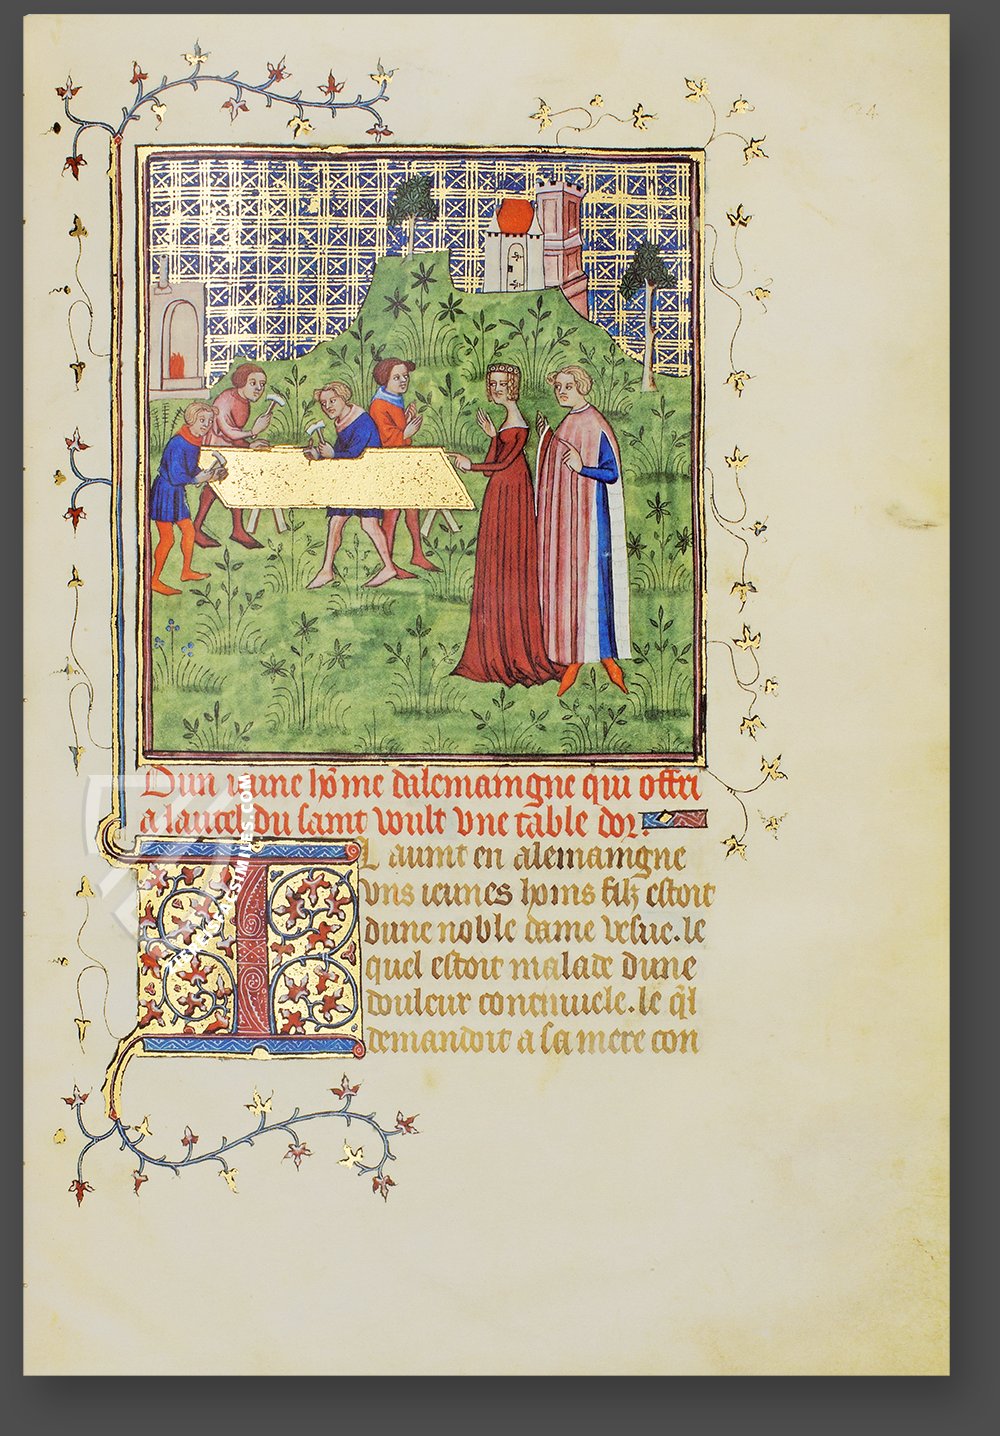 24
Dun ieune hõme dalemaingne qui offri
a lautel du saint voult vne table dor.
IL auint en alemaingne
vns ieunes homs filz estoit
dune noble dame vesue. le
quel estoit malade dune
douleur continuele. le q̃l
demandoit a sa mere con
FACSIMILES.COM